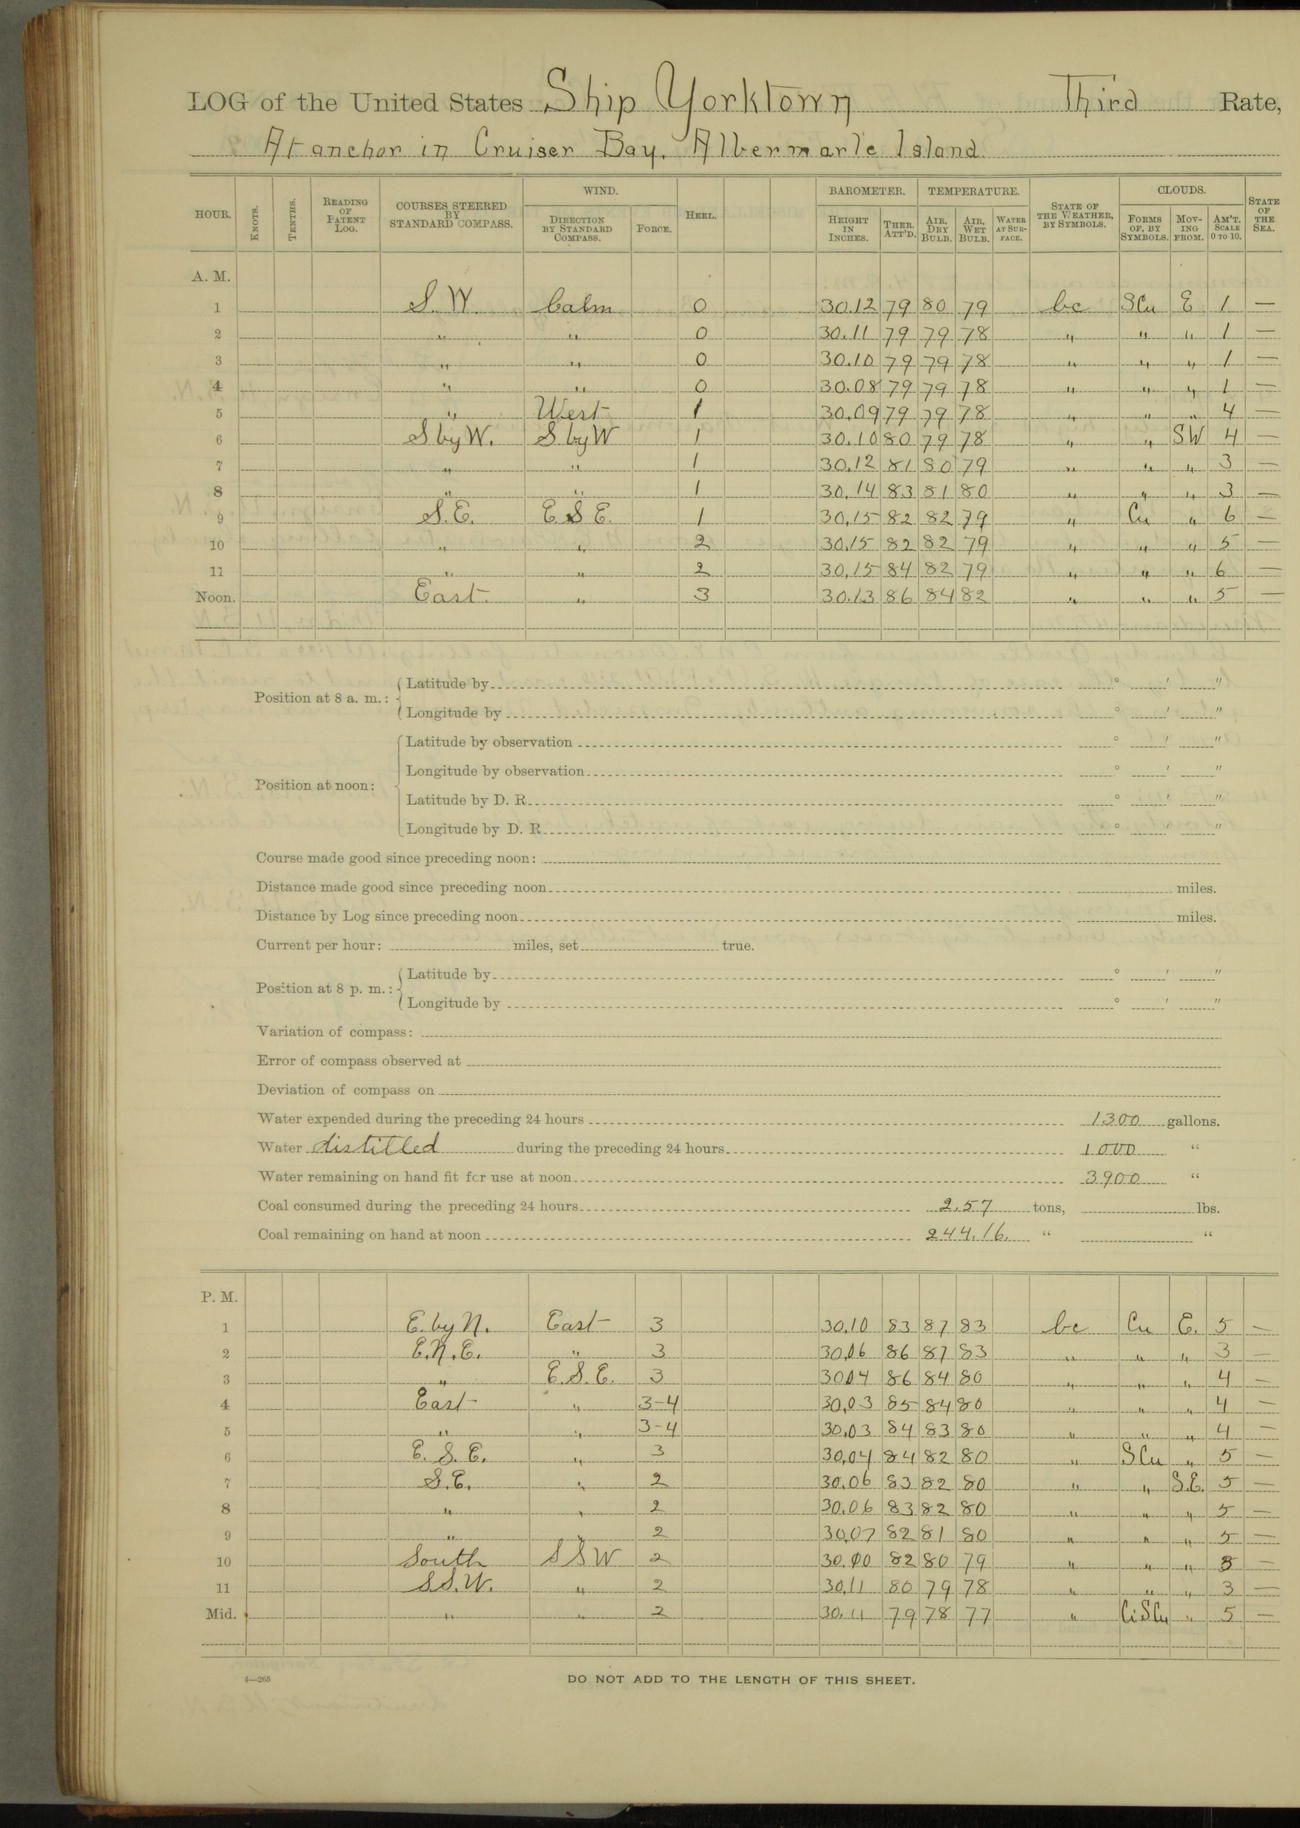 LOG of the United States Ship Yorktown Third Rate,
At anchor in Cruiser Bay, Albermarle Island
HOUR. KNOTS. TENTHS. READING OF PATENT LOG. COURSES STEERED BY STANDARD COMPASS. WIND. DIRECTION BY STANDARD COMPASS. FORCE. HEEL. BAROMETER. HEIGHT IN INCHES. THER. ATT'D. TEMPERATURE. AIR, DRY BULB. AIR, WET BULB. WATER AT SURFACE. STATE OF THE WEATHER, BY SYMBOLS. CLOUDS. FORMS OF, BY SYMBOLS. MOVING FROM. AM'T. SCALE 0 TO 10. STATE OF THE SEA.
A. M.
1 S. W. Calm 0 30.12 79 80 79 bc SCu E 1 —
2 " " 0 30.11 79 79 78 " " " 1 —
3 " " 0 30.10 79 79 78 " " " 1 —
4 " " 0 30.08 79 79 78 " " " 1 —
5 " West 1 30.09 79 79 78 " " " 4 —
6 S by W. S. by W 1 30.10 80 79 78 " " SW 4 —
7 " " 1 30.12 81 80 79 " " " 3 —
8 " " 1 30.14 83 81 80 " " " 3 —
9 S.E. E S E. 1 30.15 82 82 79 " Cu " 6 —
10 " " 2 30.15 82 82 79 " " " 5 —
11 " " 2 30.15 84 82 79 " " " 6 —
Noon. East " 3 30.13 86 84 82 " " " 5 —
Position at 8 a. m.: Latitude by ° ′ ″
Longitude by ° ′ ″
Position at noon: Latitude by observation ° ′ ″
Longitude by observation ° ′ ″
Latitude by D. R. ° ′ ″
Longitude by D. R. ° ′ ″
Course made good since preceding noon:
Distance made good since preceding noon miles.
Distance by Log since preceding noon miles.
Current per hour: miles, set true.
Position at 8 p. m.: Latitude by ° ′ ″
Longitude by ° ′ ″
Variation of compass:
Error of compass observed at
Deviation of compass on
Water expended during the preceding 24 hours 1300 gallons.
Water distilled during the preceding 24 hours 1000 "
Water remaining on hand fit for use at noon 3900 "
Coal consumed during the preceding 24 hours 2.57 tons, lbs.
Coal remaining on hand at noon 244.16. " "
P. M.
1 E. by N. East 3 30.10 83 87 83 bc Cu E. 5 —
2 E.N.E. " 3 30.06 86 87 83 " " " 3 —
3 " E.S.E. 3 30.04 86 84 80 " " " 4 —
4 East " 3-4 30.03 85 84 80 " " " 4 —
5 " " 3-4 30.03 84 83 80 " " " 4 —
6 E. S. E. " 3 30.04 84 82 80 " SCu " 5 —
7 S.E. " 2 30.06 83 82 80 " " S.E. 5 —
8 " " 2 30.06 83 82 80 " " " 5 —
9 " " 2 30.07 82 81 80 " " " 5 —
10 South S S W 2 30.10 82 80 79 " " " 3 —
11 S S. W. " 2 30.11 80 79 78 " " " 3 —
Mid. " " 2 30.11 79 78 77 " CiSCu " 5 —
4—265 DO NOT ADD TO THE LENGTH OF THIS SHEET.